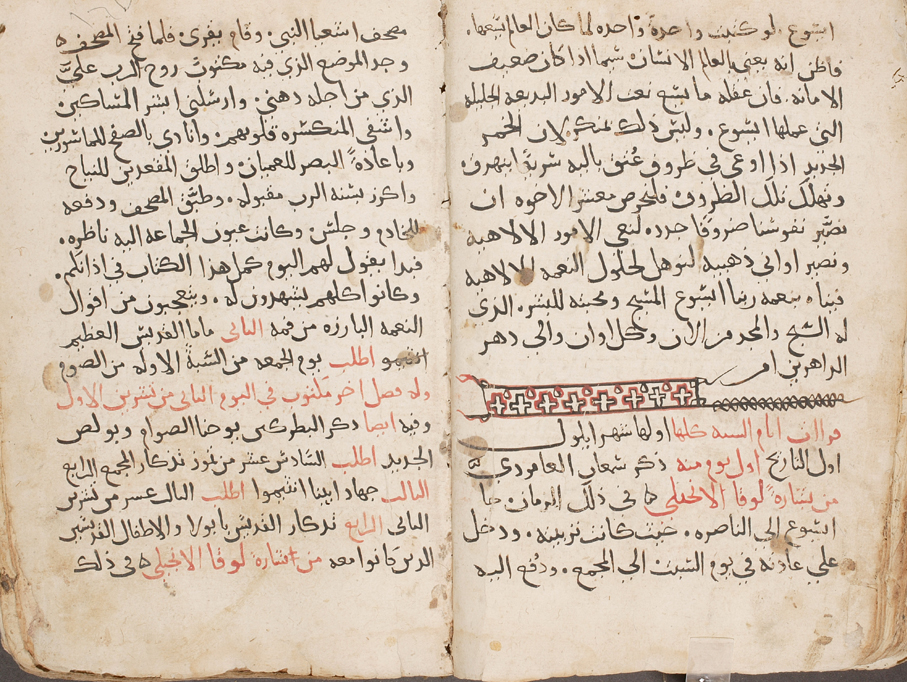 ايشوع. لو كتبت واحدة واحده لما كان العالم يسعها.
فاظن انه يعني بالعالم الانسان سيما اذا كان ضعيف
الامانه. فان عقله ما يسع نعت الامور البديعه الجليله
التي عملها ايشوع. وليس ذلك بمنكر لان الخمر
الجديد اذا اوعي في ظروف عتق باليه سريعا ينهرق
وتهلك تلك الظروف. فلنحرص معشر الاخوه ان
نصير نفوسنا ضروفا جدده لتعي الامور الالاهيه
ونصير اواني ذهبيه لنوهل لحلول النعمه الالاهيه
فينا. بنعمه ربنا ايشوع المسيح ومحبته للبشر. الذي
له السبح والمجد من الان وكل اوان والي دهر
الداهرين امين
قراات ايام السنه كلها اولها شهر ايلول
اول التاريخ اول يوم منه ذكر سمعان العامودي
من بشارة لوقا الانجيلي في ذلك الزمان. جا
ايشوع الي الناصره. حيت كانت تربيته. ودخل
علي عادته في يوم السبت الي المجمع. ودفع اليه
مصحف اشعيا النبي. وقام يقرى. فلما فتح المصحف
وجد الموضع الذي فيه مكتوب روح الرب عليَّ
الذي من اجله دهني. وارسلني ابشر المساكين
واشفي المنكسره قلوبهم. وانادي بالصفح للماسورين
وباعادة البصر للعميان. واطلق المقعدين للنياح
واكرز بسنه الرب مقبوله. وطبق المصحف ودفعه
للخادم وجلس. وكانت عيون الجماعه اليه ناظره.
فبدا يقول لهم اليوم كمل هذا الكتاب في اذانكم.
وكانوا كلهم يشهدون له. ويتعجبون من اقوال
النعمه البارزه من فمه التاني ماما القديس العظيم
اطلب يوم الجمعه من السبة الاوله من الصوم
وله فصل اخر مكتوب في اليوم التاني من تشرين الاول
وفيه ايضا ذكر البطركين يوحنا الصوام وبولص
الجديد اطلب السادس عشر من تموز تذكار المجمع الرابع
التالت جهاد ابينا انتيموا اطلب التالت عشر من تشرين
التاني الرابع تذكار القديس بابولا والاطفال القديسين
الدين كانوا معه من بشارة لوقا الانجيلي في ذلك